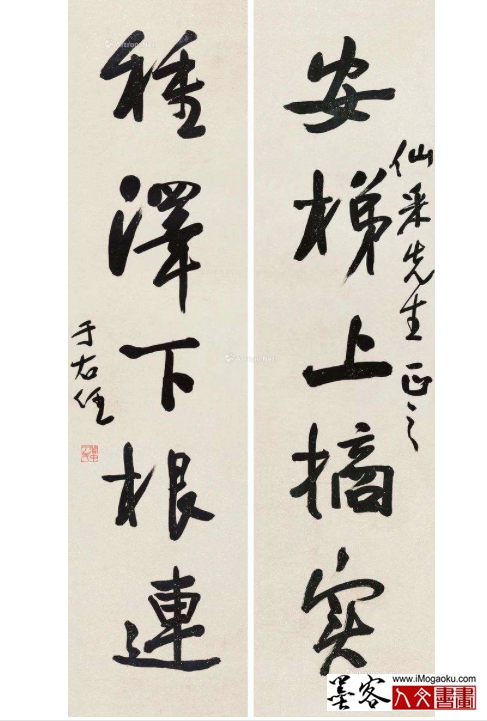 安梯上摘实
仙采先生正之
種澤下根連
于右任
墨客
www.iMogaoku.com
人文書畫